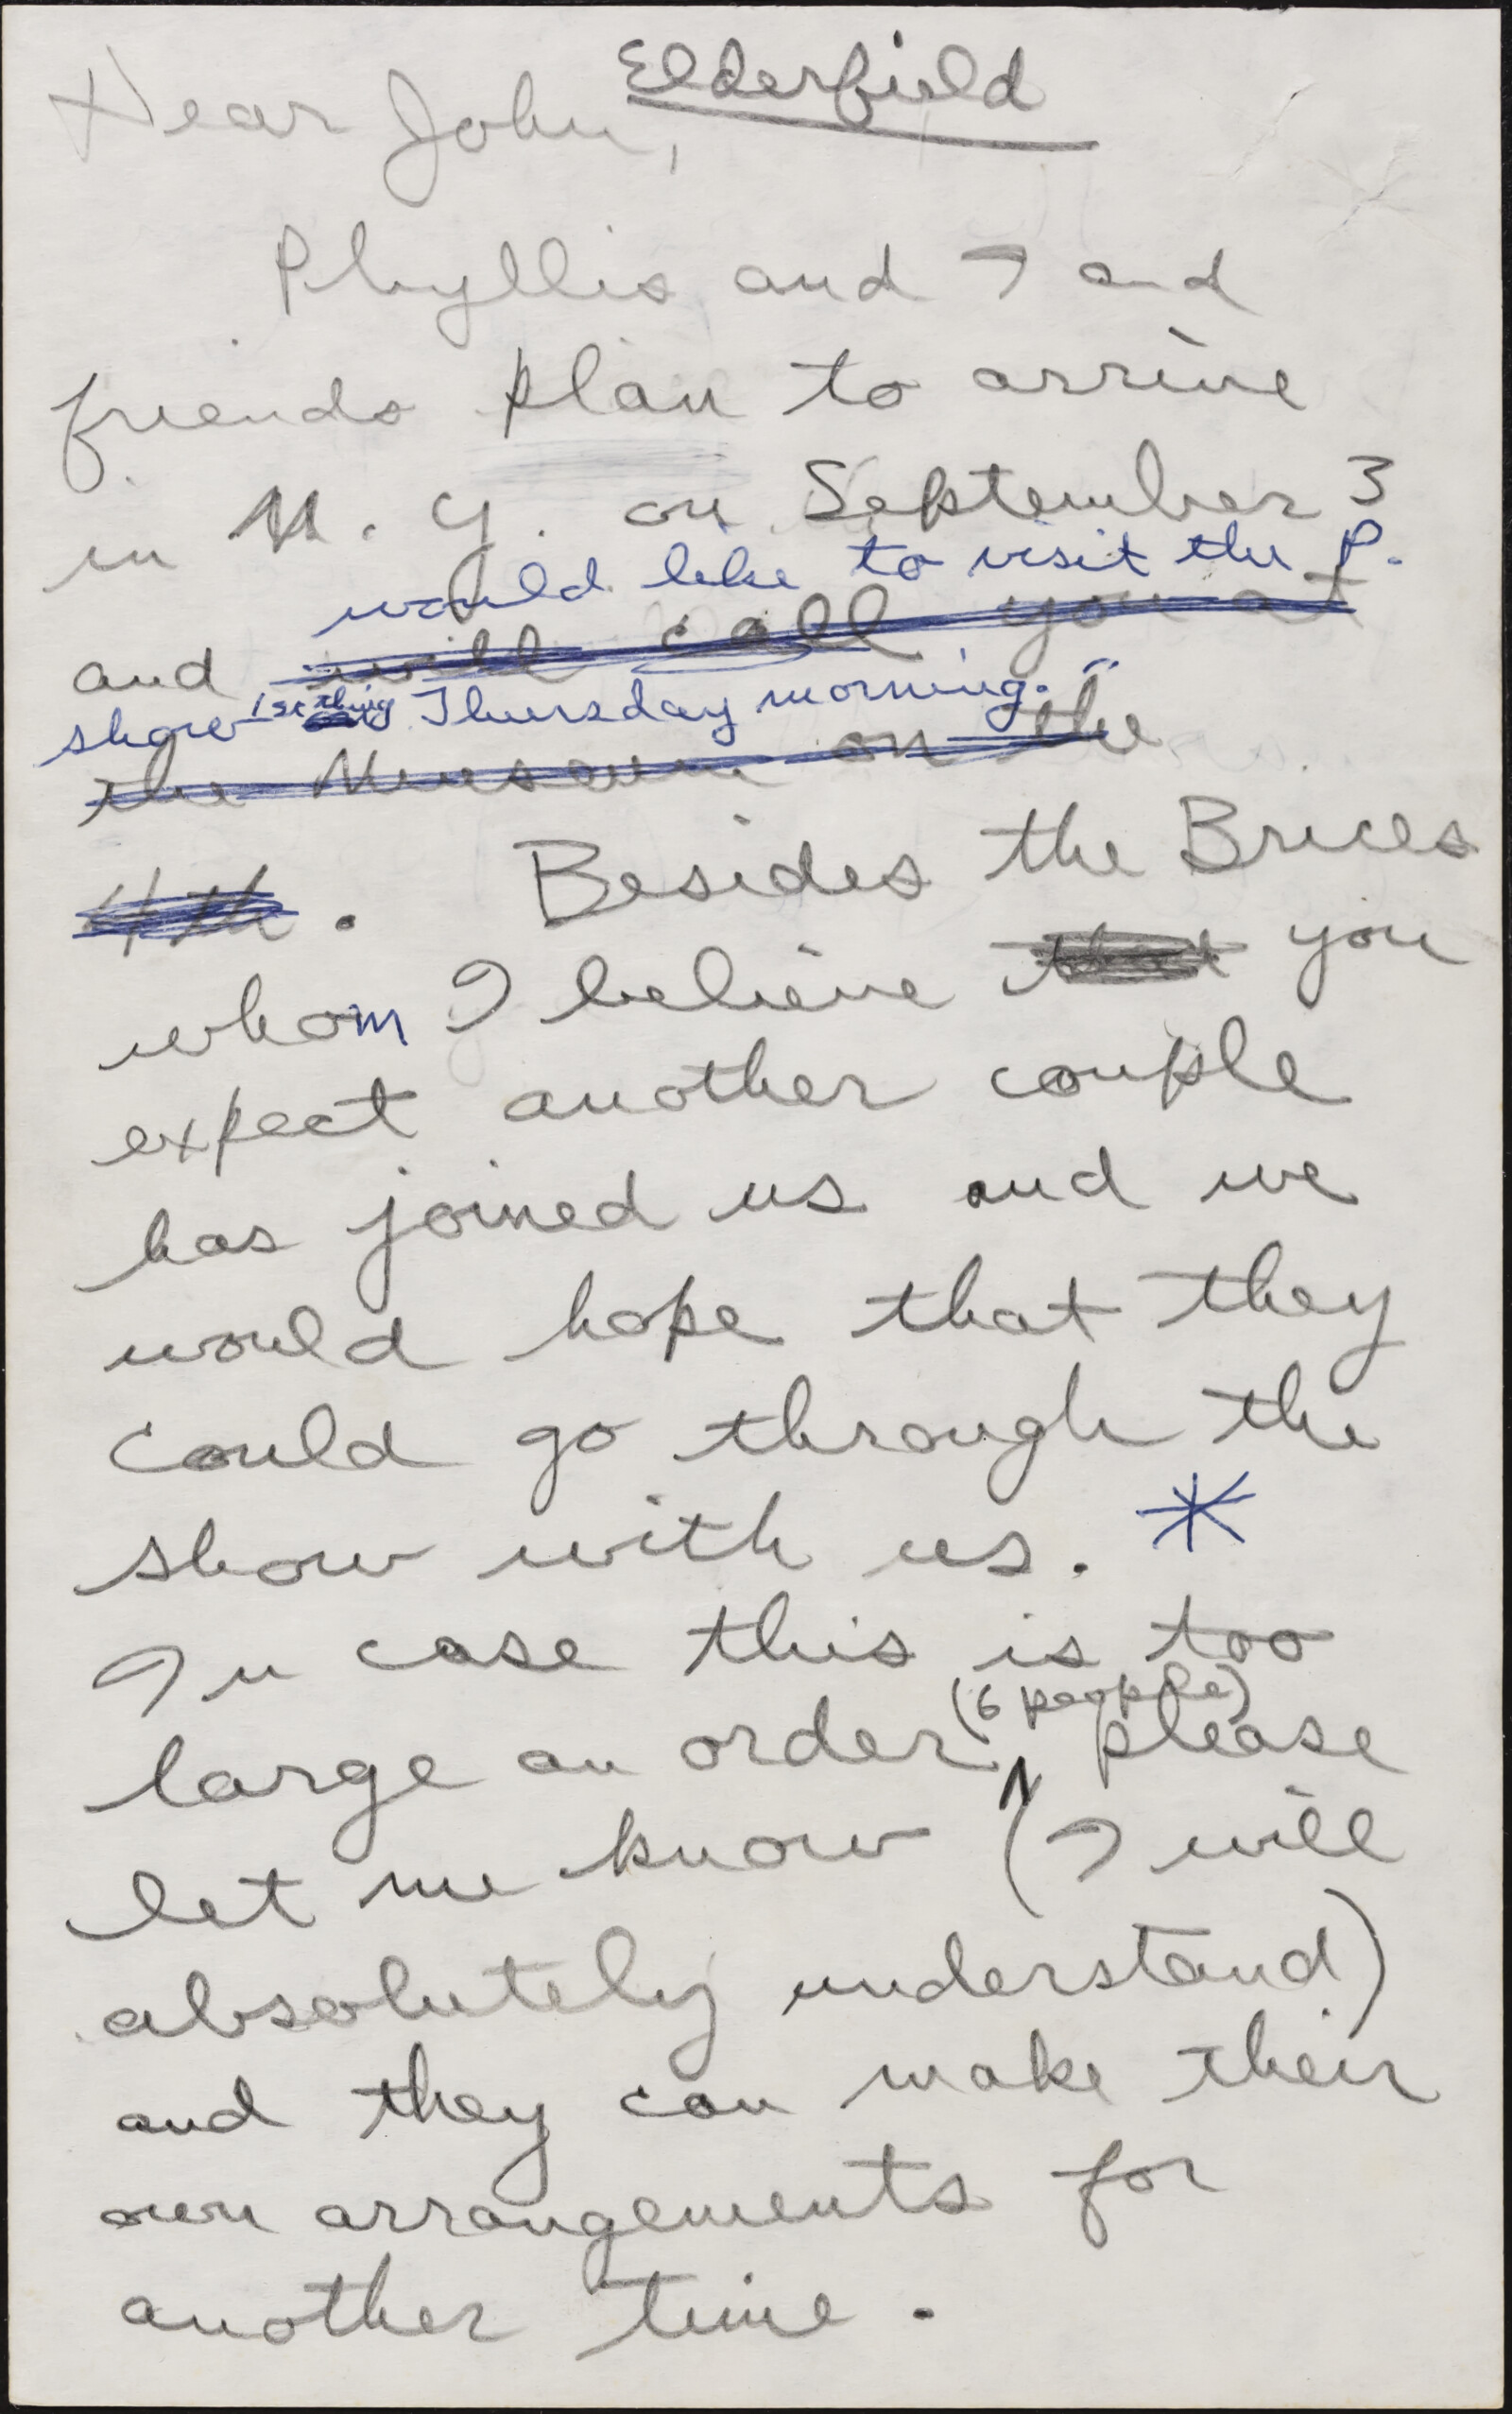 Elderfield
Dear John,
Phyllis and I and
friends plan to arrive
in N.Y. on September 3
would like to visit the P.
and will call you at
show 1st thing Thursday morning.
the Museum on the
4th. Besides the Brices
whom I believe that you
expect another couple
has joined us and we
would hope that they
could go through the
show with us. *
In case this is too
(6 people)
large an order, please
let me know (I will
absolutely understand)
and they can make their
own arrangements for
another time.